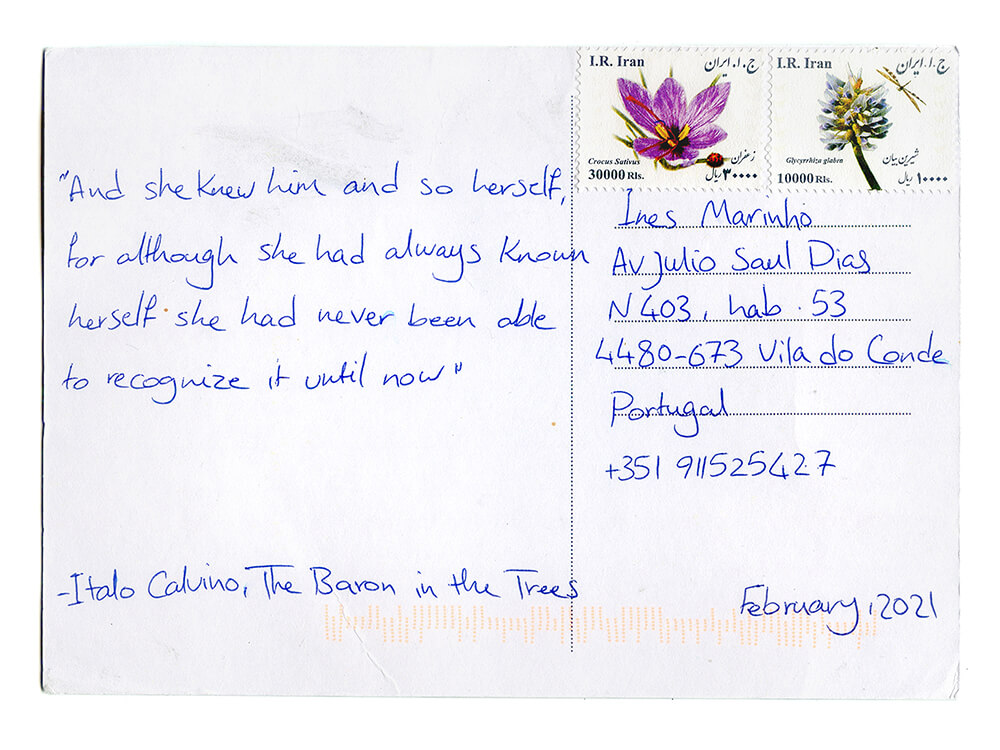 I.R. Iran ج.ا.ایران
Crocus Sativus زعفران
30000 Rls. ۳۰۰۰۰ ریال
I.R. Iran ج.ا.ایران
Glycyrrhiza glabra شیرین بیان
10000 Rls. ۱۰۰۰۰ ریال
"And she knew him and so herself,
for although she had always known
herself she had never been able
to recognize it until now"
-Italo Calvino, The Baron in the Trees
Ines Marinho
Av Julio Saul Dias
N 403, hab. 53
4480-673 Vila do Conde
Portugal
+351 911525427
February, 2021